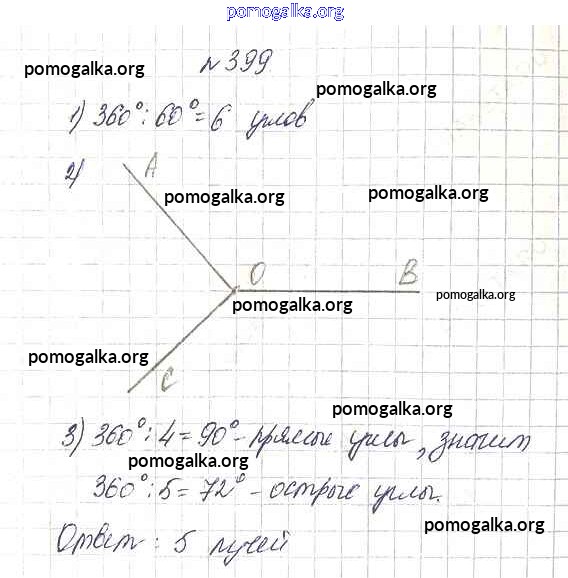 pomogalka.org
№399
pomogalka.org
pomogalka.org
1) 360°:60°=6 углов
2)
A
pomogalka.org
pomogalka.org
O
B
pomogalka.org
pomogalka.org
pomogalka.org
C
pomogalka.org
3) 360°:4=90°-прямые углы, значит
pomogalka.org
360°:5=72°-острые углы.
pomogalka.org
Ответ: 5 лучей